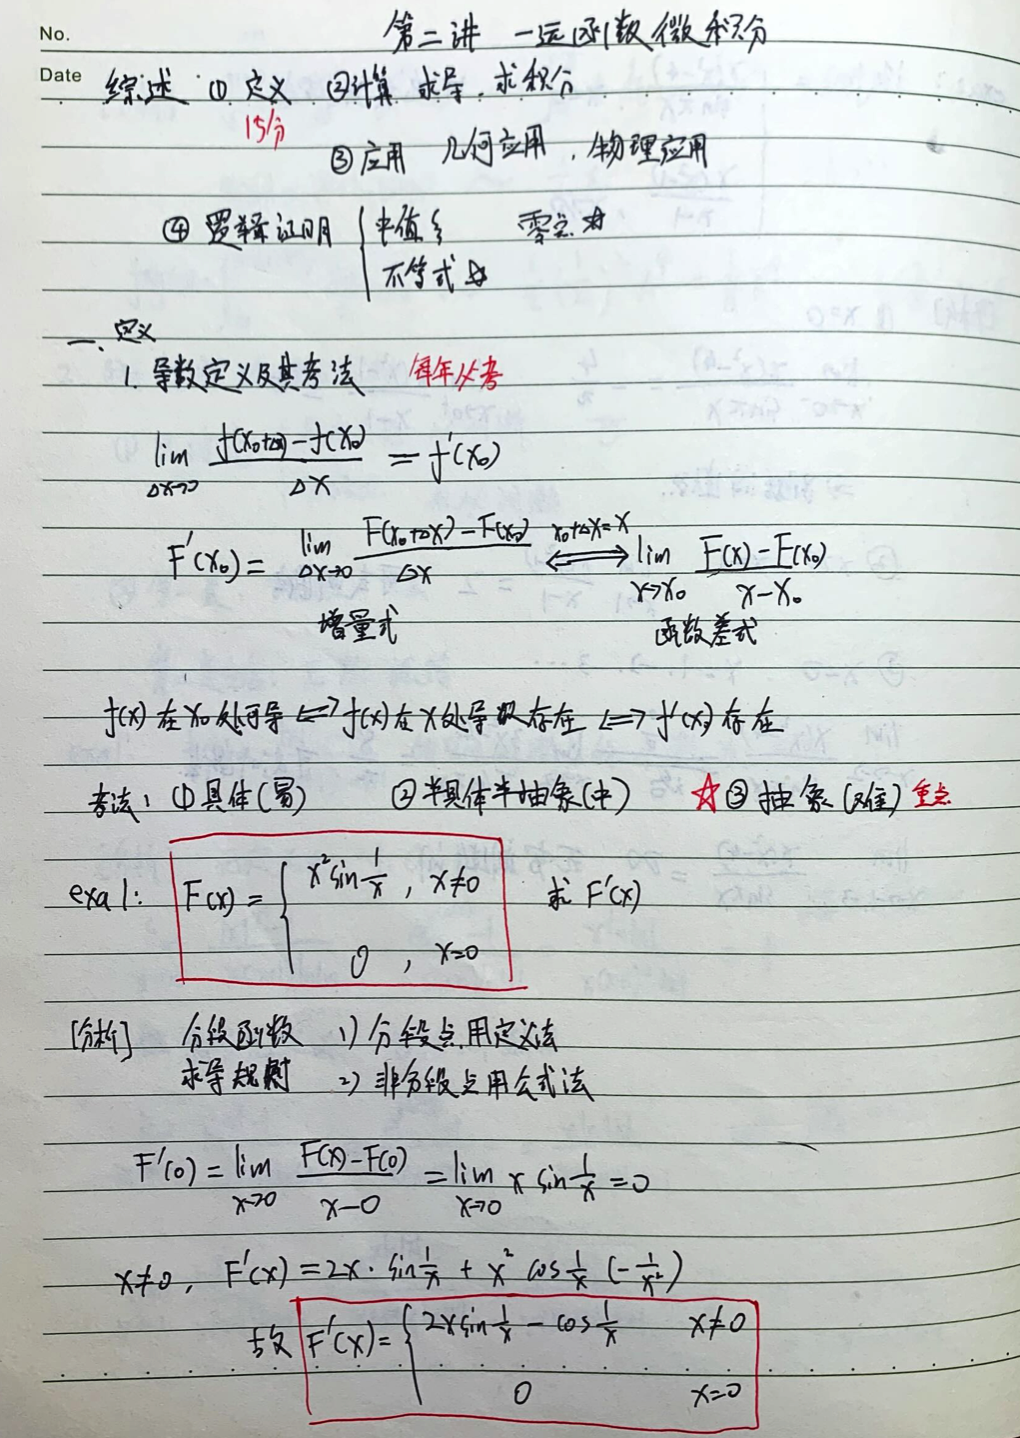 No.
第二讲 一元函数微积分
Date
综述 ① 定义 ②计算 求导、求积分
15分
③应用 几何应用、物理应用
④ 逻辑证明 { 中值ξ 零点☆
不等式☆
一、定义
1. 导数定义及其考法 每年必考
lim_{Δx→0} \frac{f(x₀+Δx)-f(x₀)}{Δx} = f'(x₀)
F'(x₀) = lim_{Δx→0} \frac{F(x₀+Δx)-F(x₀)}{Δx} \xLeftrightarrow{x₀+Δx=x} lim_{x→x₀} \frac{F(x)-F(x₀)}{x-x₀}
增量式 函数差式
f(x)在x₀处可导 ⇔ f(x)在x处导数存在 ⇔ f'(x)存在
考法: ①具体(易) ②半具体半抽象(中) ☆③抽象(难) 重点
exa 1: F(x) = { x² sin\frac{1}{x} , x≠0 求 F'(x)
0 , x=0
[分析] 分段函数 1) 分段点用定义法
求导规则 2) 非分段点用公式法
F'(0) = lim_{x→0} \frac{F(x)-F(0)}{x-0} = lim_{x→0} x sin\frac{1}{x} = 0
x≠0, F'(x) = 2x · sin\frac{1}{x} + x² cos\frac{1}{x} (-\frac{1}{x²})
故 F'(x) = { 2x sin\frac{1}{x} - cos\frac{1}{x} x≠0
0 x=0